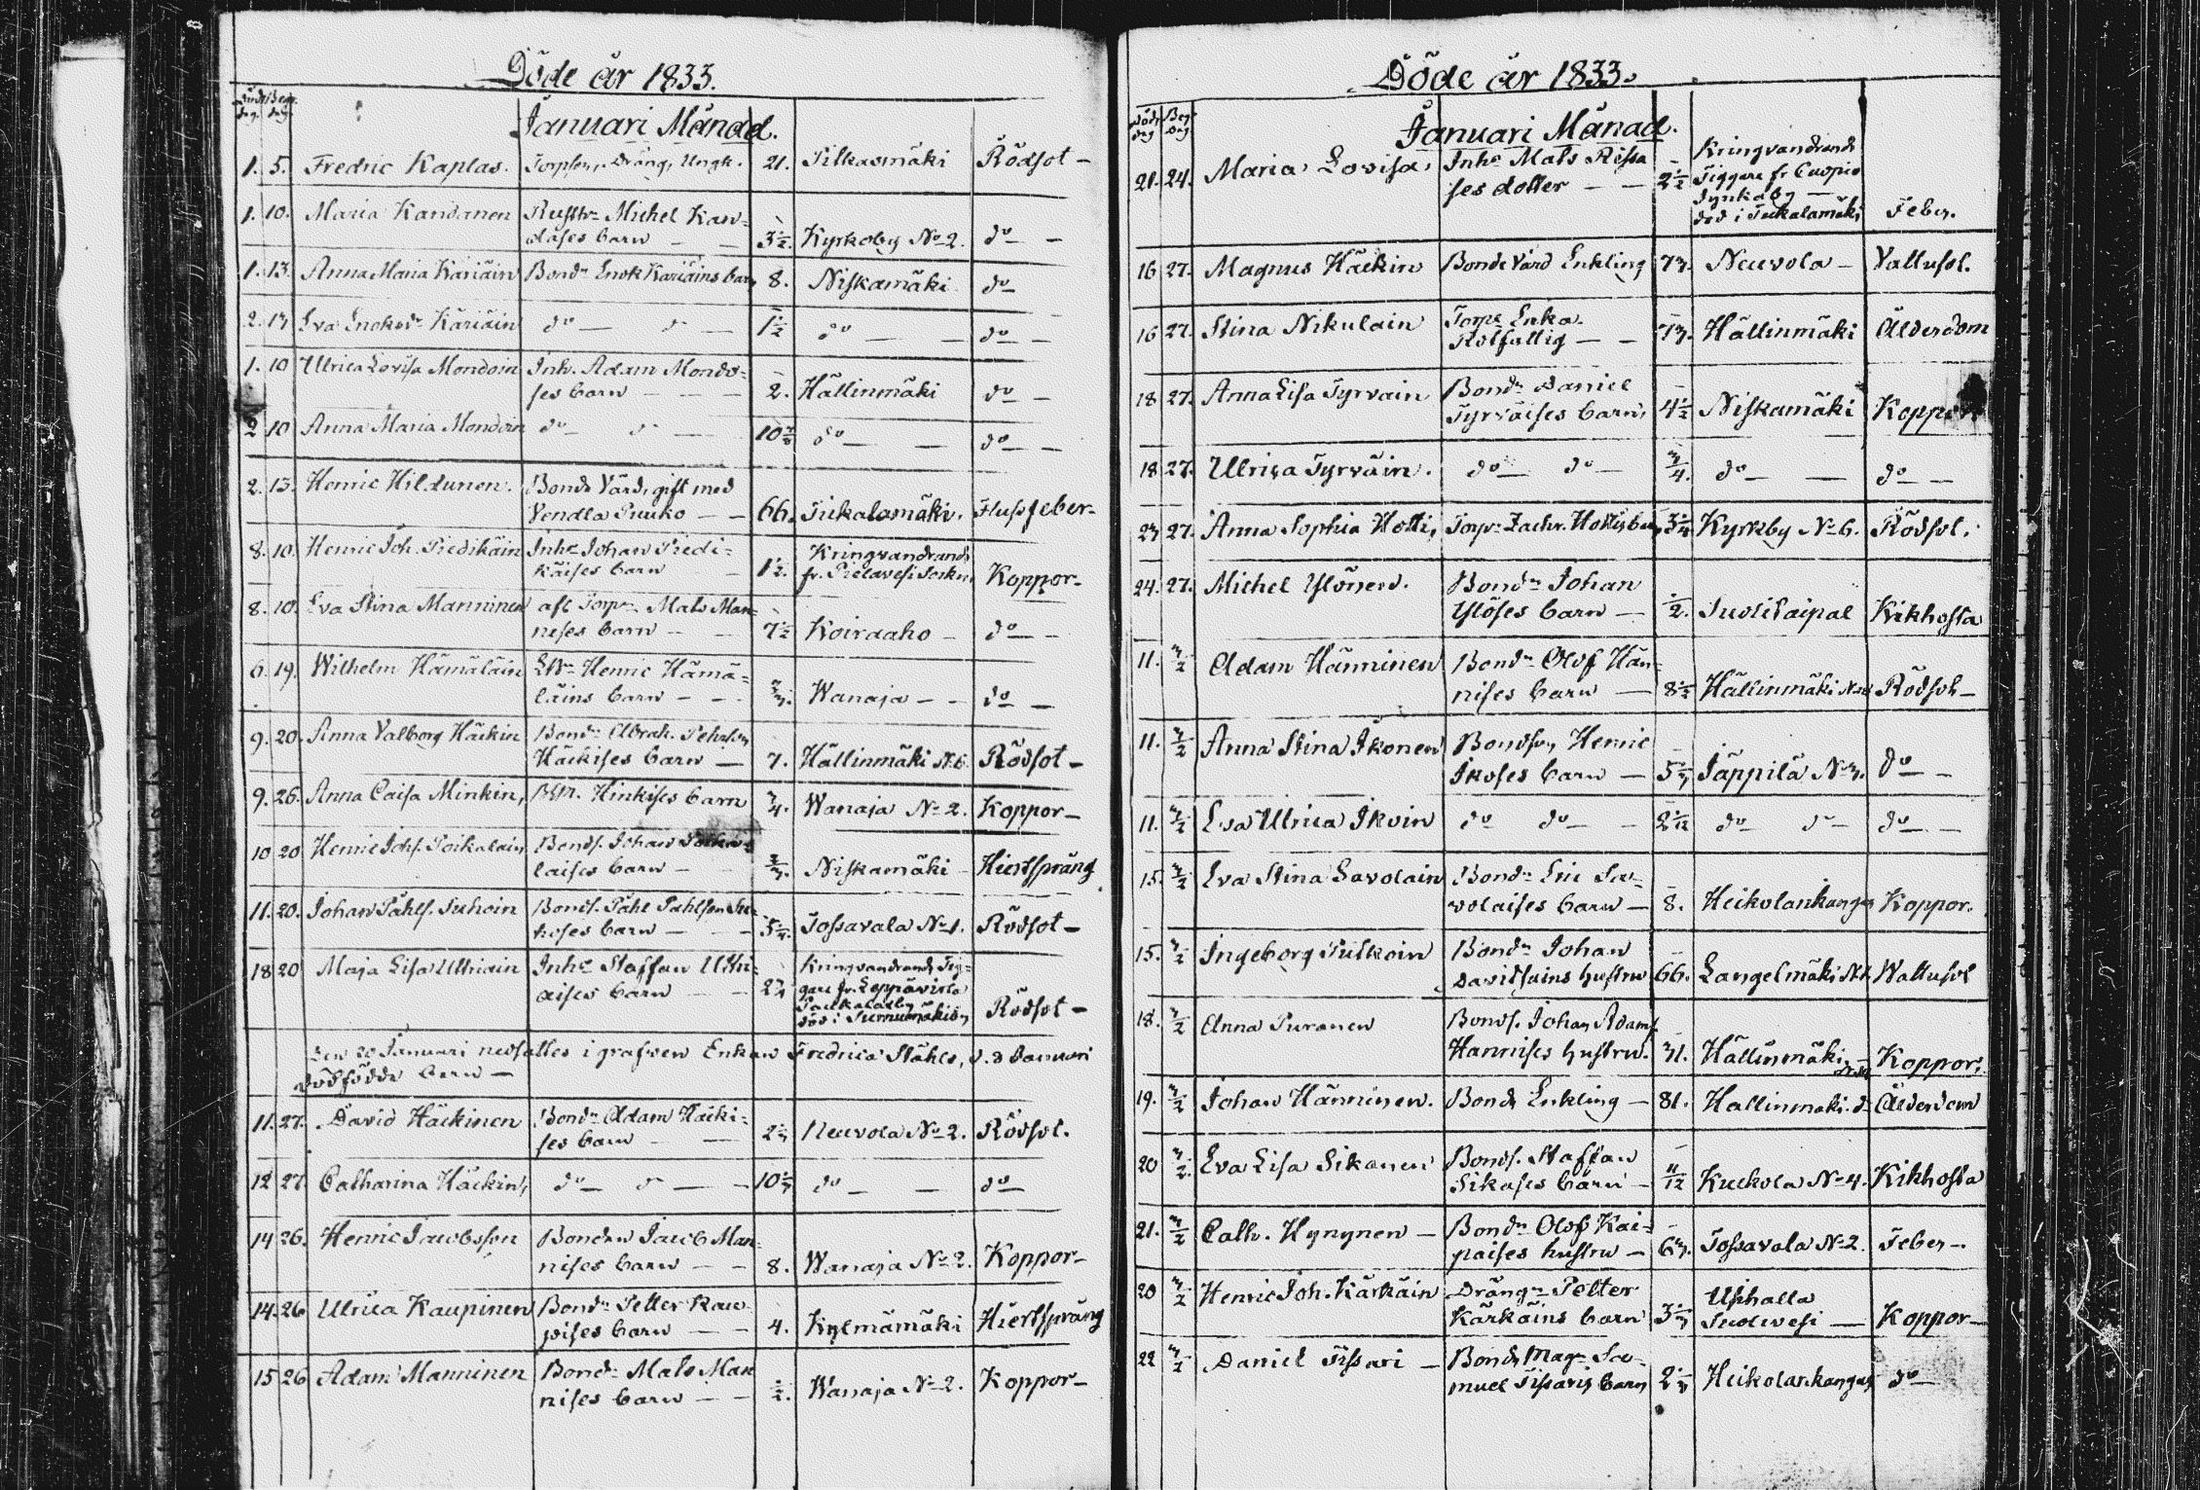 Döde år 1833.
Januari Månad.
1. 5. Fredric Kaplas. Torpson, Dräng, Ungk. 21. Pitkasmäki Rödsot -
1. 10. Maria Kandanen Rusthr Michel Kan-
dases barn — 3½. Kyrkoby No 2. do -
1. 13. Anna Maria Käriäin Bondn Enok Käriäins barn 8. Niskamäki do
2. 13 Eva Enoksdr Käriäin do — do — 1½ do — do -
1. 10 Ulrica Lovisa Mondoin Inh. Adam Mondo-
ses barn — 2. Hällinmäki do -
2 10 Anna Maria Mondoin do — do — do — do -
2. 13. Henric Hildunen. Bonde Värd, gift med
Vendla Puuko — 66. Tiikalamäki. Flussfeber-
8. 10. Henric Joh. Predikäin Inhs Johan Predi-
käises barn 1½. Kringvandrande
fr. Pielavesi Sockn Koppor-
8. 10. Eva Stina Manninen afl Torpr Mats Man-
nises barn — 7½ Koiraaho - do -
6. 19. Wilhelm Hämäläin Henric Hämä-
läins barn — Wanaja - - do -
9. 20. Anna Valborg Häckin Bondn Abrah. Pehrson
Häckises barn — 7. Hällinmäki N. 6. Rödsot -
9. 26. Anna Caisa Minkin, Hinkises barn ¾. Wanaja No 2. Koppor-
10 20 Henric Johs. Poikalain, Bonds. Johan Poika-
laises barn — Niskamäki - Hiertsprång
11. 20. Johan Påhls. Suhoin Bonds. Påhl Påhlson Su-
hoses barn — Tossavala No 1. Rödsot -
18 20 Maja Lisa Uthiain Inhs Staffan Uthi-
aises barn — Kringvandrande Tig-
gare fr. Leppävirta
död i Rödsot -
Den 20 Januari nedsattes i grafven Enkan Fredrica Ståhls, d. 8 Januari
dödfödde barn —
11. 27. David Häckinen Bondn Adam Häcki-
ses barn — Neuvola No 2. Rödsot.
12 27 Catharina Häckin, do — do — do — do
14 26. Henric Jacobsson Bonden Jacob Man-
nises barn — 8. Wanaja No 2. Koppor-
14. 26 Ulrica Kaupinen Bondn Petter Kau-
pises barn — 4. Kylmämäki Hiertsprång
15 26 Adam Manninen Bondn Mats Man
nises barn — ½. Wanaja No 2. Koppor-
Döde år 1833.
Januari Månad.
Död dag Beg dag
21. 24. Maria Lovisa, Inhs Mats Rissa
ses dotter — 2½ Kringvandrande
Tiggare fr Cuopio
död i Tiikalamäki Feber.
16 27. Magnus Häckin Bonde Värd Enkling 73. Neuvola - Vattusot.
16 27. Stina Nikulain Torps Enka.
Rotfattig — 73. Hällinmäki Ålderdom
18 27. Anna Lisa Tyrvain Bondn Daniel
Tyrväises barn, 4½ Niskamäki Koppor
18 27. Ulrica Tyrväin. do — do — ¾. do — do -
23 27. Anna Sophia Hotti, Torpr Zachr. Hottis barn, Kyrkby No 6. Rödsot.
24. 27. Michel Ylönen. Bondn Johan
Ylöses barn — ½. Suolitaipal Kikhosta
11. 3/2 Adam Hänninen Bondn Olof Hän-
nises barn — 8½ Hällinmäki Rödsot-
11. 3/2 Anna Stina Ikonen Bondson Henric
Ikoses barn — Jäppilä No 3. do -
11. 3/2 Eva Ulrica Ikoin do do — do do do -
15. 3/2 Eva Stina Savolain Bondn Eric Sa-
volaises barn — 8. Heikolankangas Koppor.
15. 3/2 Ingeborg Putkoin Bondn Johan
Davidsains hustru 66. Längelmäki Wattusot
18. 3/2 Anna Puranen Bonds. Johan Adams
Hännises hustru. 31. Hällinmäki Koppor.
19. 3/2 Johan Hänninen. Bonde Enkling — 81. Hällinmäki. do Ålderdom
20 3/2 Eva Lisa Sikanen Bonds. Staffan
Sikases barn — 11/12 Kuckola No 4. Kikhosta
21. 3/2 Cath. Hynynen — Bondn Olof Kai-
paises hustru — 63. Tossavala No 2. Feber -
20 3/2 Henric Joh. Kärkäin Drängn Petter
Kärkäins barn
Suolivesi — Koppor-
22 3/2 Daniel Tissari — Bonde Mågn Sa-
muel Tissaris barn Heikolankangas do -